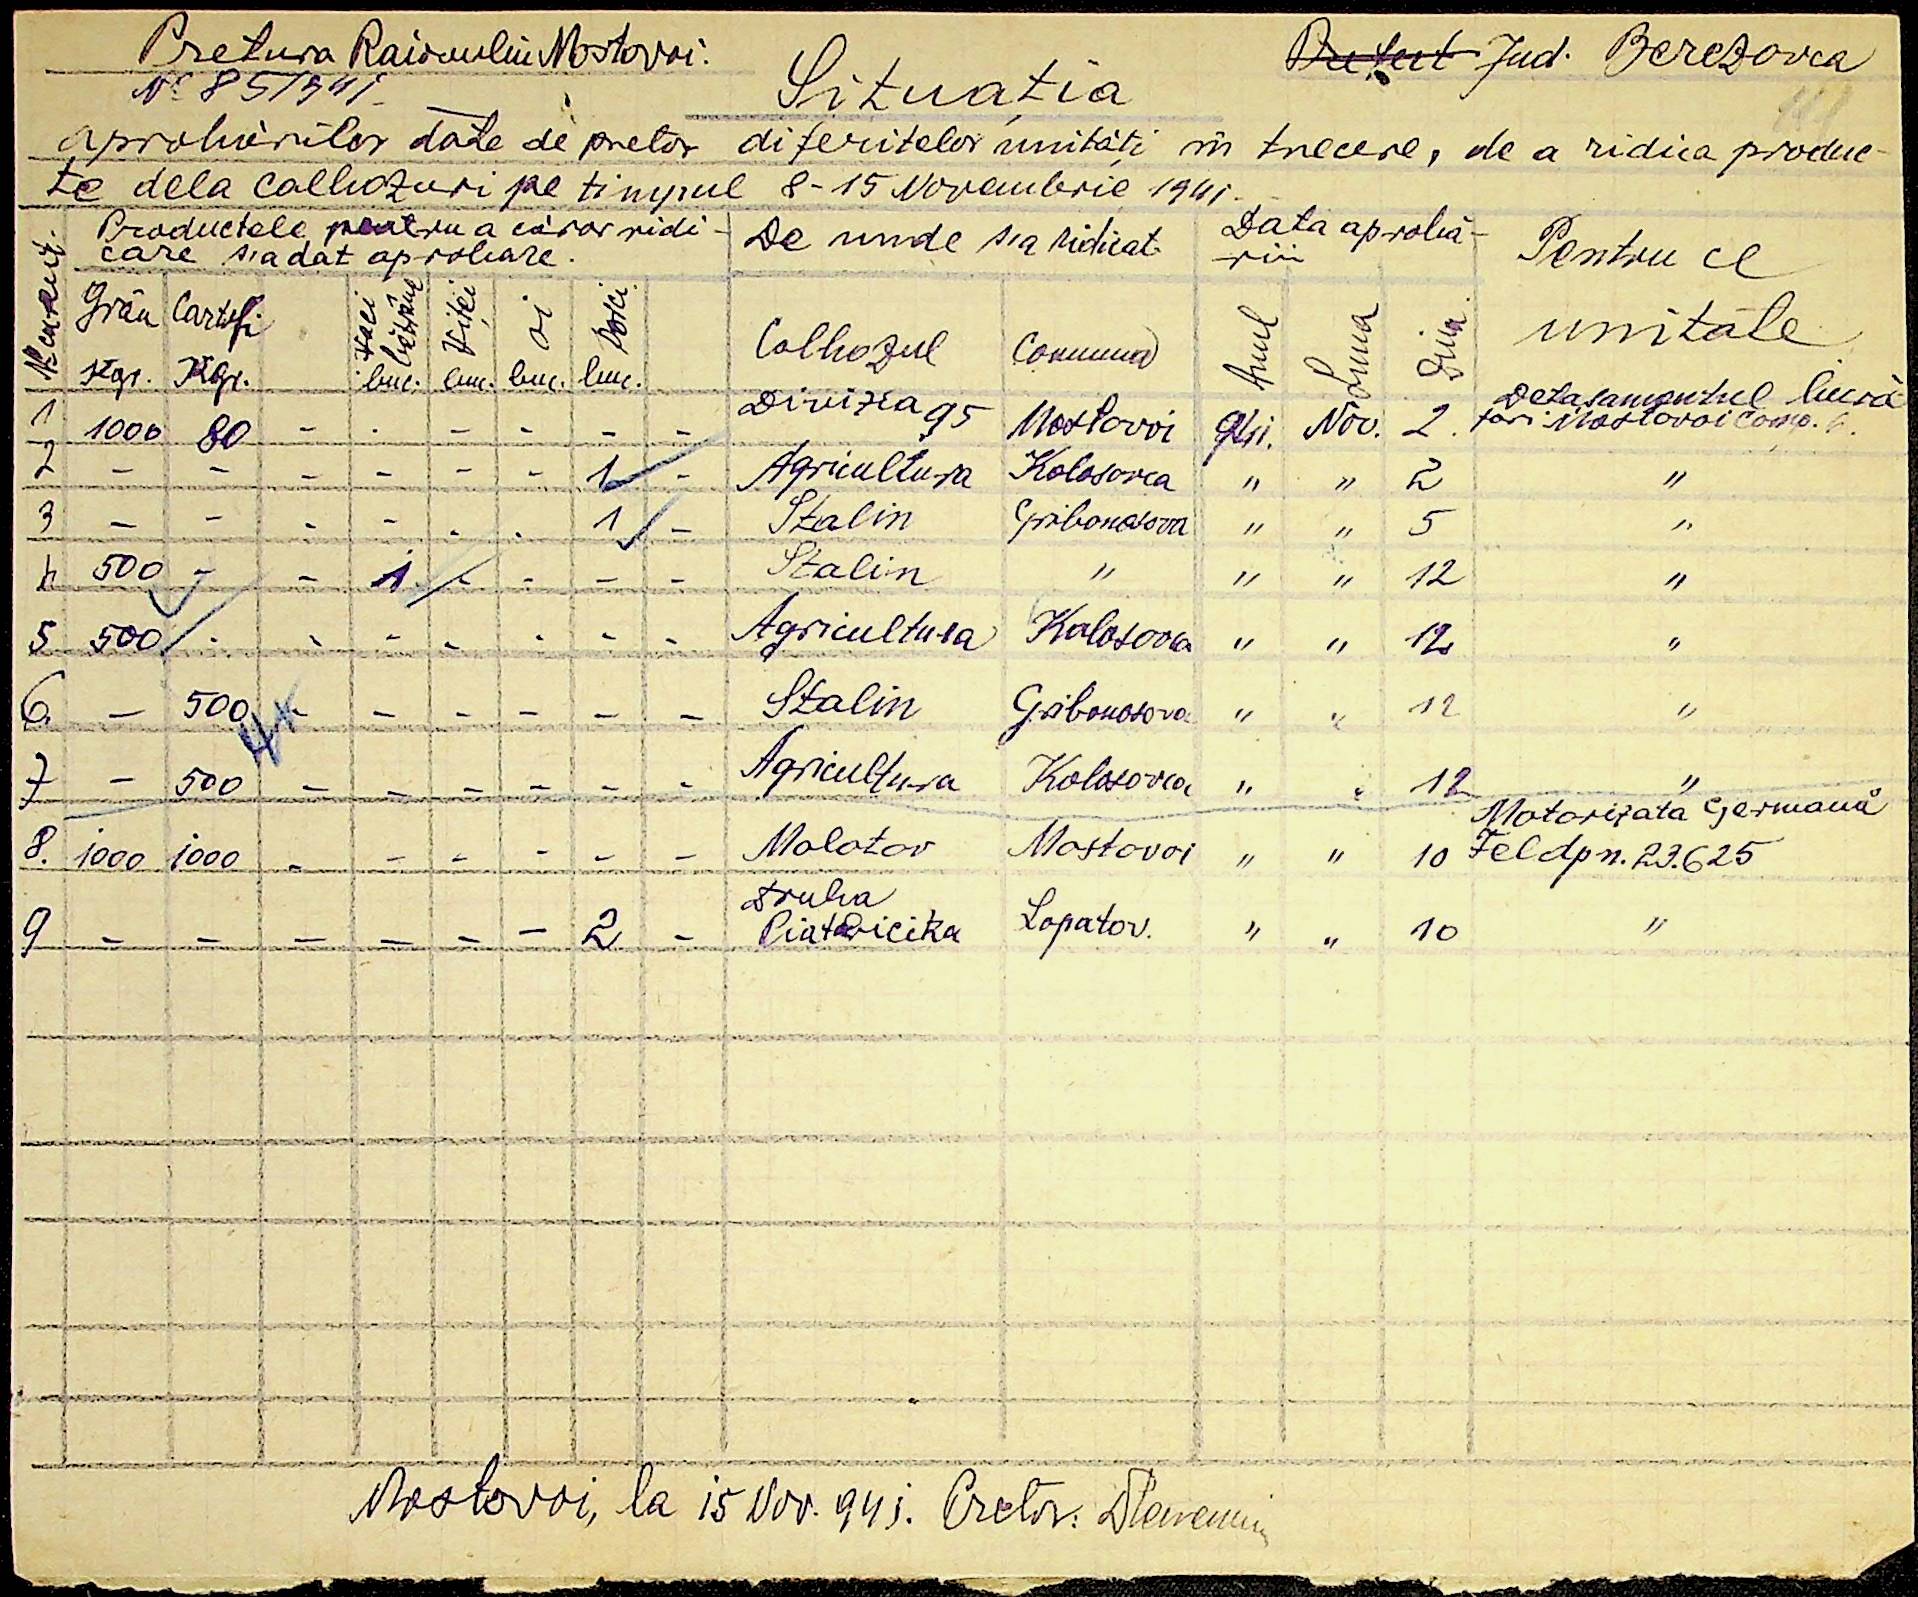 Pretura Raionului Mostovoi. Jud. Berezovca
Nº 85/941
Situația
aprobărilor date de pretor diferitelor unități în trecere, de a ridica produc-
te dela colhozuri pe timpul 8-15 Novembrie 1941.
Nr. curent. Productele pentru a căror ridi- De unde s'a ridicat Data aprobă- Pentru ce
care s'a dat aprobare. rii unitate
Grâu Kgr. Cartofi Kgr. Vaci bătrâne buc. Viței buc. oi buc. Porci buc. Colhozul Comuna Anul Luna Ziua
1 1000 80 - - - - - - Divizia 95 Mostovoi 941. Nov. 2. Detasamentul lucră
tori Mostovoi Comp.
2 - - - - - - 1 - Agricultura Kolosovca " " 2 "
3 - - - - - - 1 - Stalin Gribonosova " " 5 "
4 500 - - 1 - - - - Stalin " " " 12 "
5 500 - - - - - - - Agricultura Kolosovca " " 12 "
6 - 500 - - - - - - Stalin Gribonosova " " 12 "
7 - 500 - - - - - - Agricultura Kolosovca " " 12 "
8. 1000 1000 - - - - - - Molotov Mostovoi " " 10 Motorizata Germană
Feldpn. 23.625
9 - - - - - - 2 - Druha
Piatoricitka Lopatov. " " 10 "
Mostovoi, la 15 Nov. 941. Pretor: